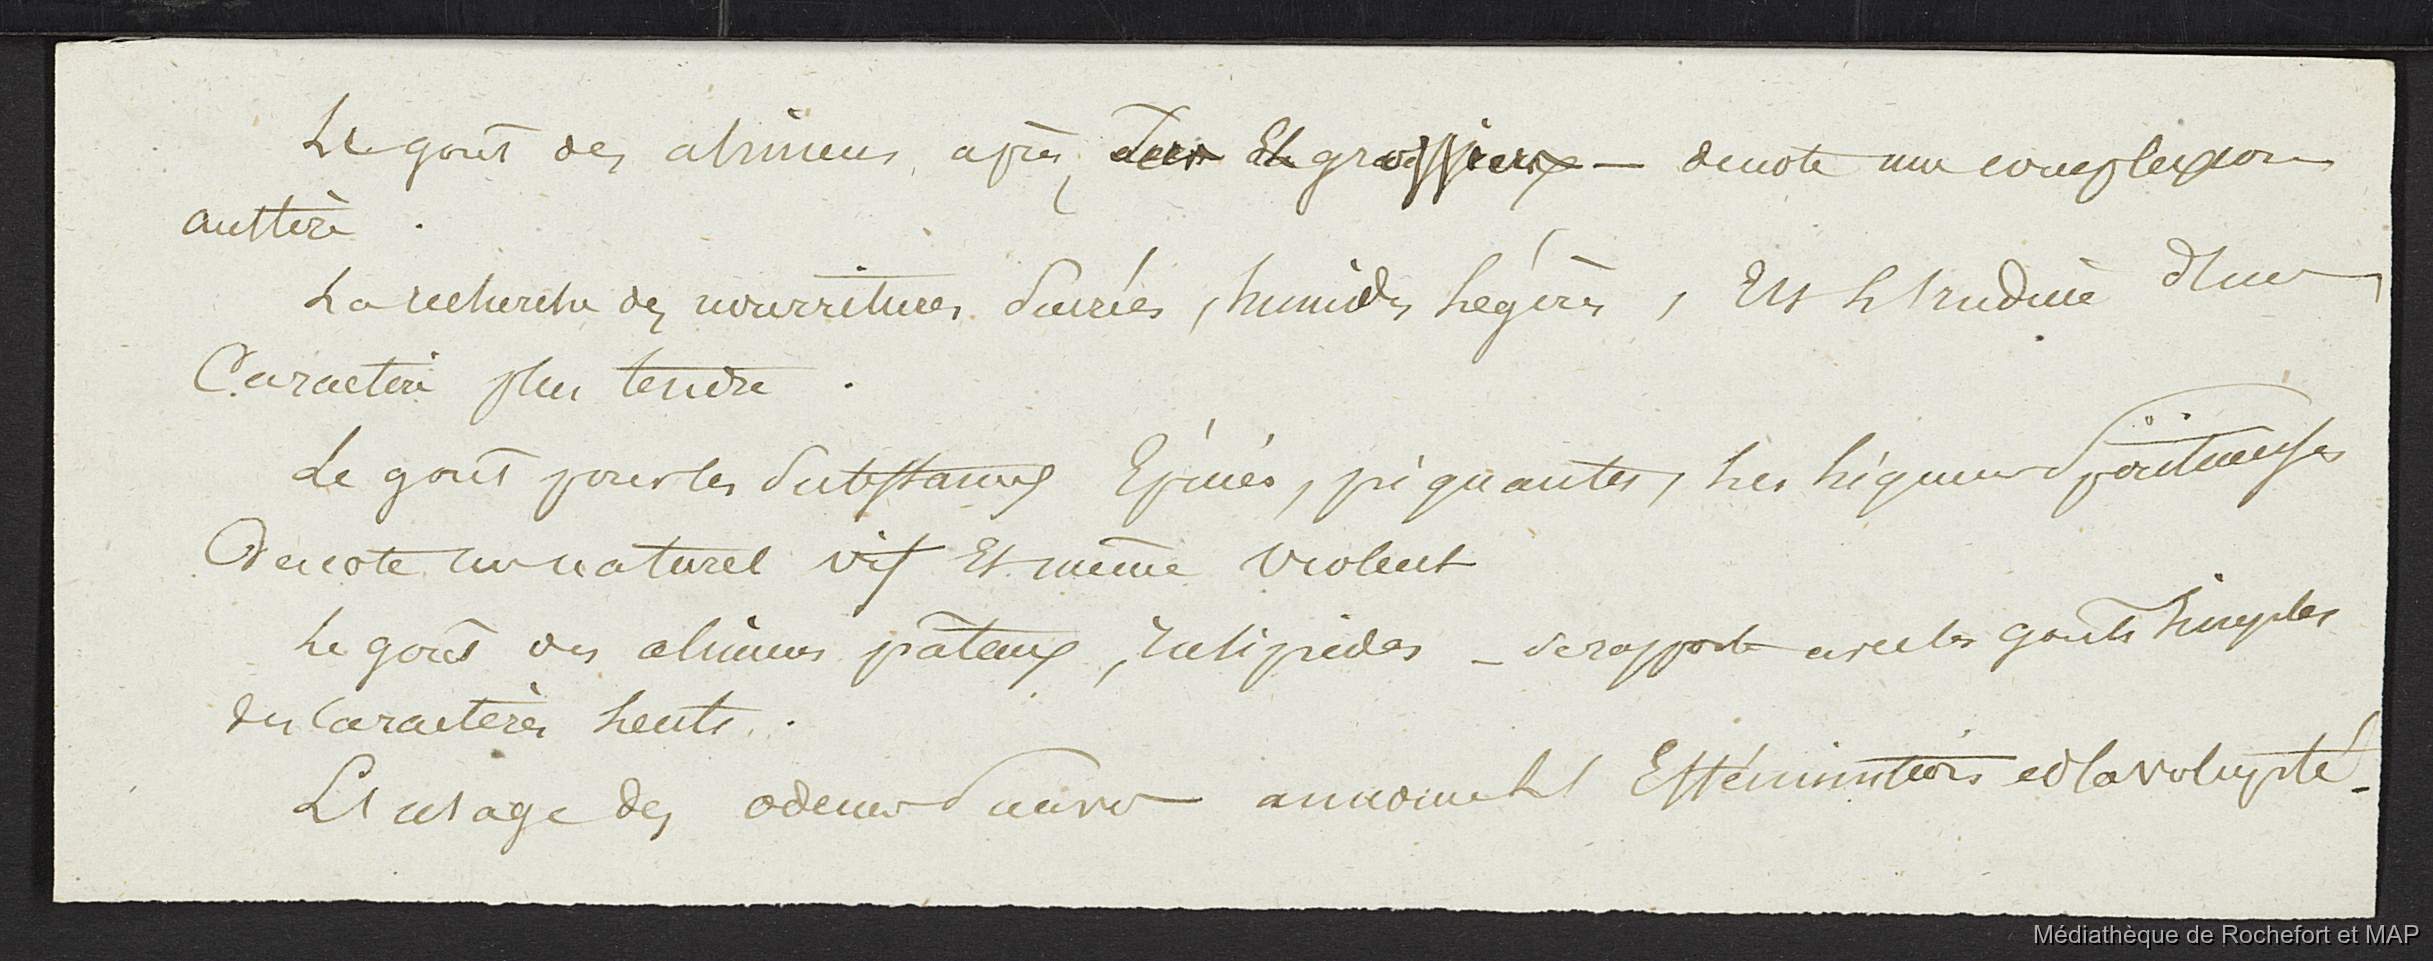 Le gout des alimens, après, durs et grossiers — denote une complexion
austère.
La recherche des nourritures sucrées, humides, légères, est l'indice d'un
Caractère plus tendre.
Le gout pour les substances épicées, piquantes, les liqueurs spiritueuses
Denote un naturel vif et même violent
le gout des alimens pâteux, insipides — se rapporte avec les gouts simples
des caractères lents.
L'usage des odeurs suaves annonce l' Effémination et la volupté –
Médiathèque de Rochefort et MAP